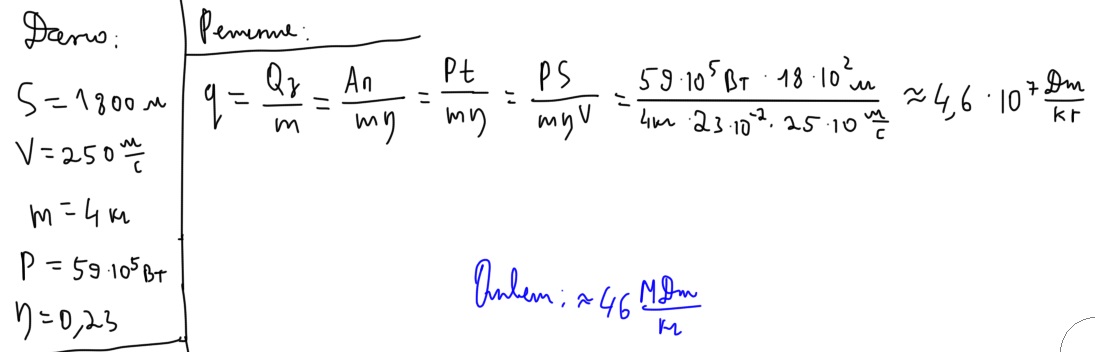 Дано:
S = 1800 м
V = 250 м/с
m = 4 кг
P = 59·10⁵ Вт
η = 0,23
Решение:
q = Qз/m = Aп/mη = Pt/mη = PS/mηV = 59·10⁵ Вт · 18·10² м / 4кг · 23·10⁻² · 25·10 м/с ≈ 4,6 · 10⁷ Дж/кг
Ответ: ≈ 46 МДж/кг